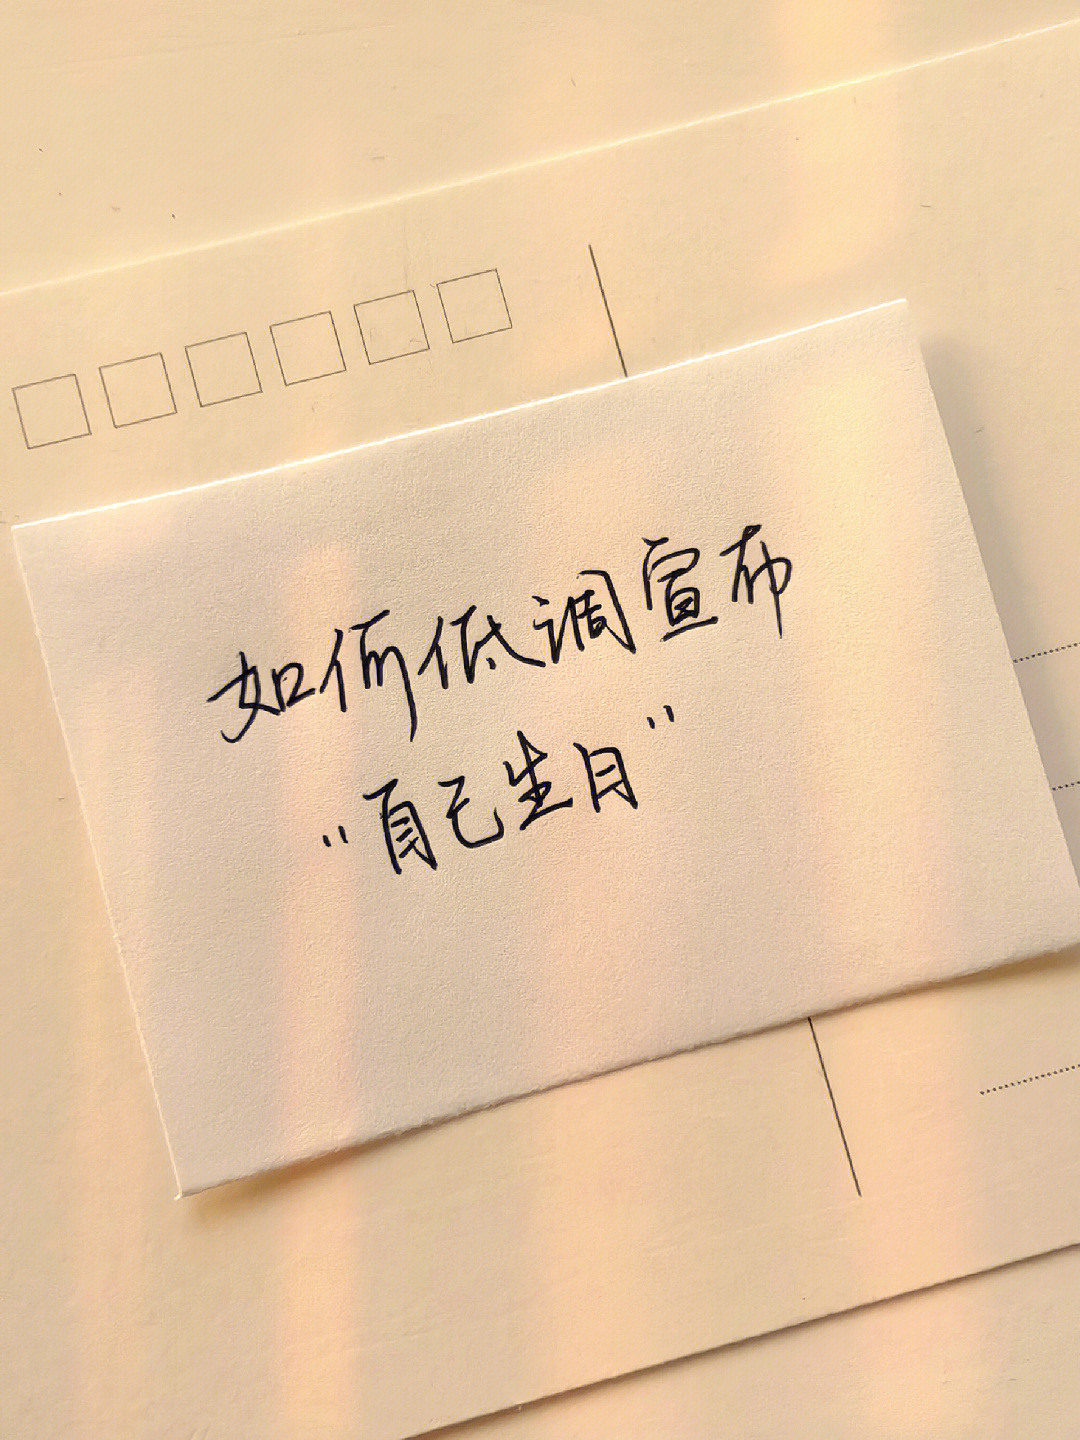 如何低调宣布
"自己生日"